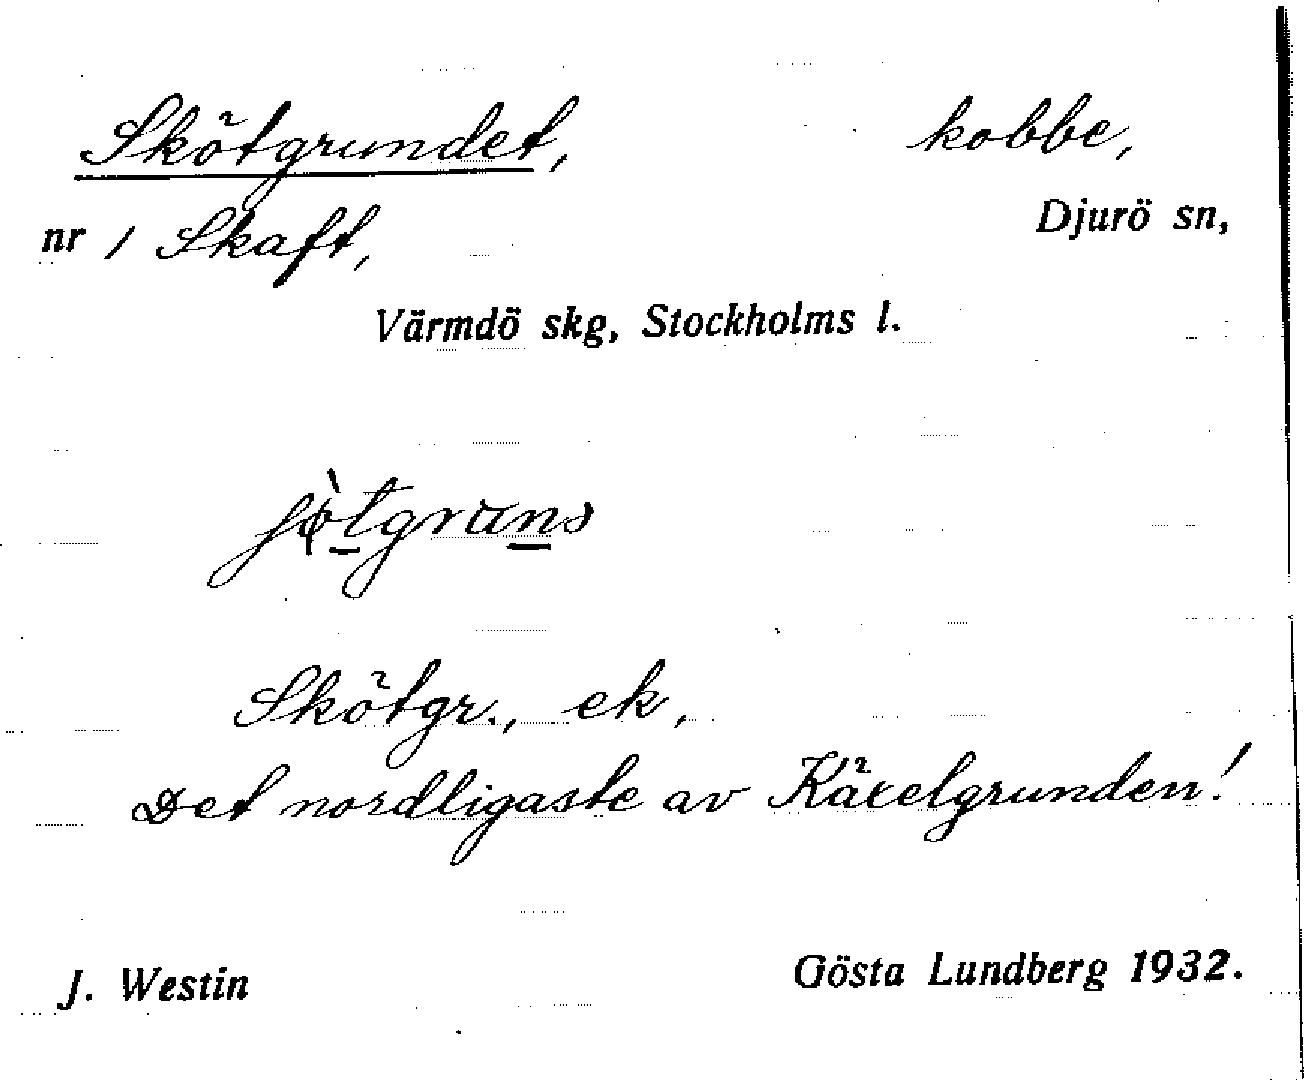 Skötgrundet, kobbe,
nr 1 Skaft, Djurö sn,
Värmdö skg, Stockholms l.
Skötgr., ek,
Det nordligaste av Käxelgrunden!
J. Westin Gösta Lundberg 1932.